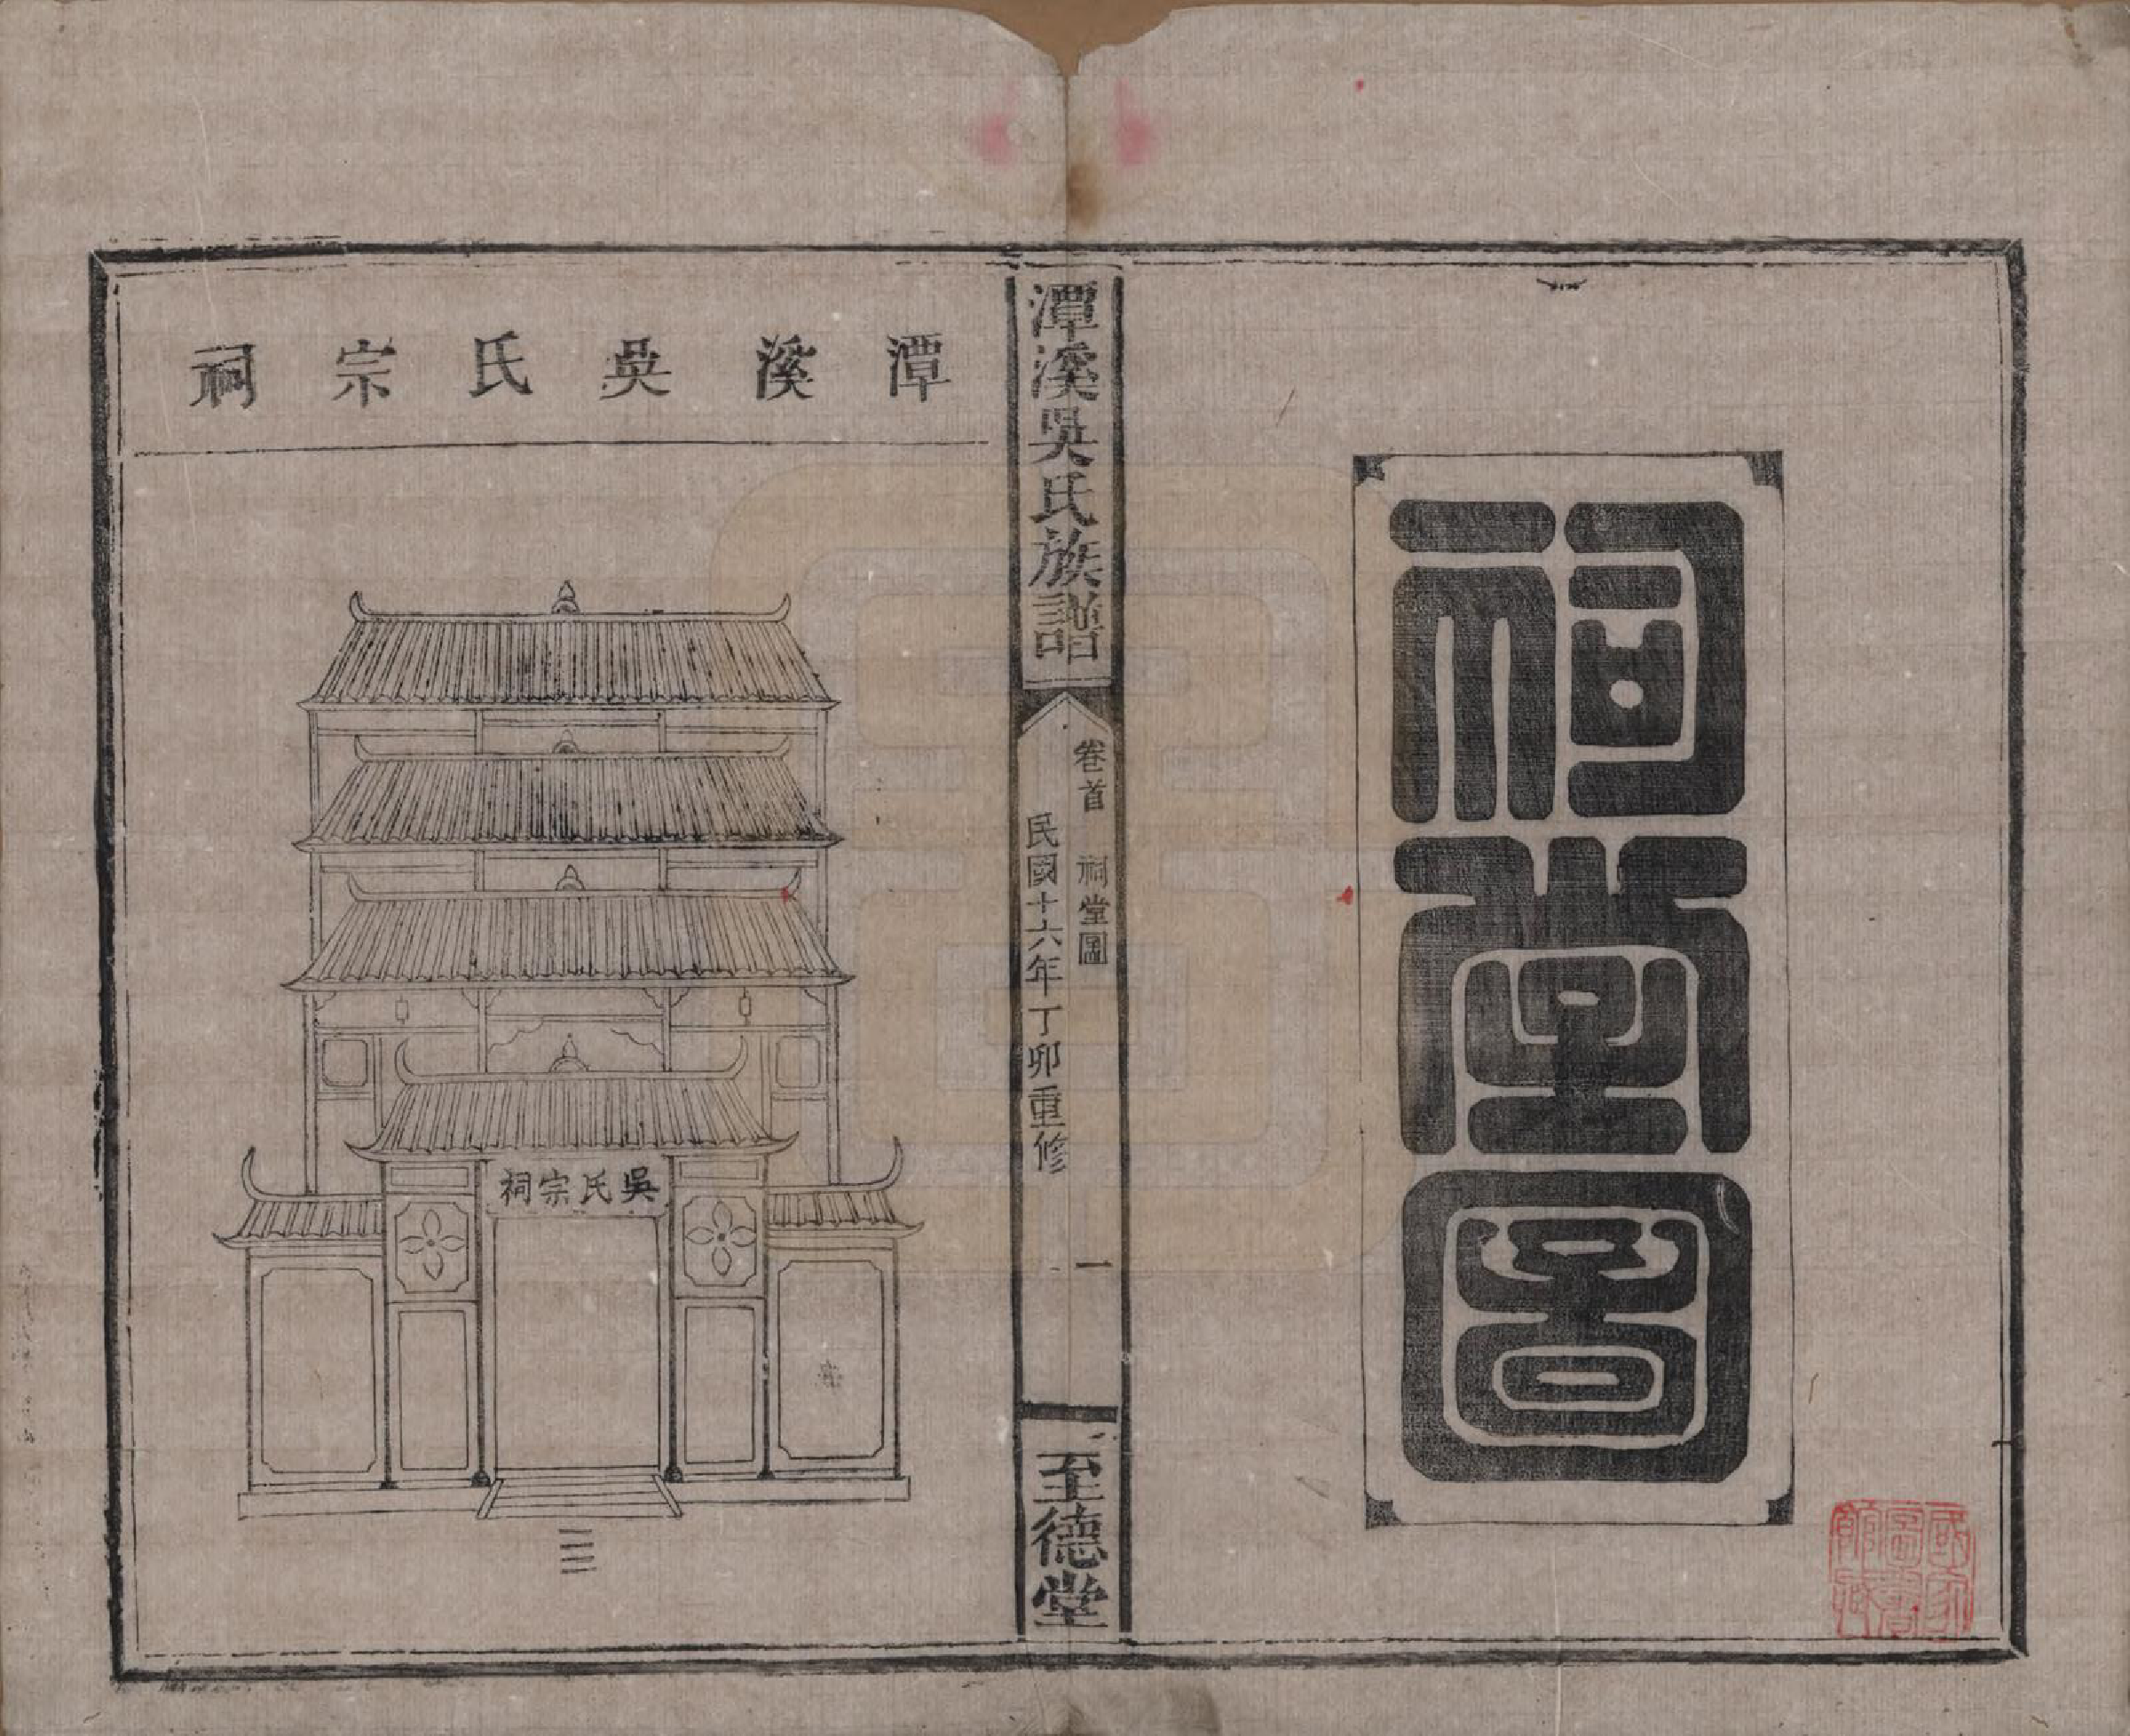 祠堂圖
國家
圖書
館藏
潭溪吳氏族譜
卷首 祠堂圖 一
民國十六年丁卯重修
至德堂
潭溪吳氏宗祠
吳氏宗祠